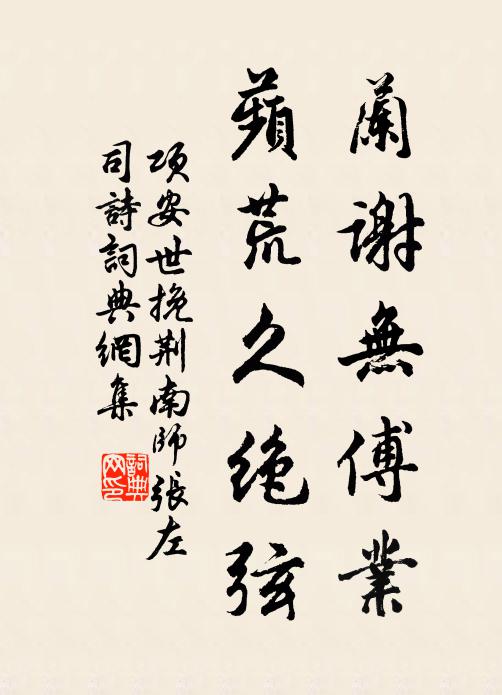 蘭謝無傅業
蘋荒久絶弦
項安世挽荆南師張左
司詩詞典網集
詞典
网印